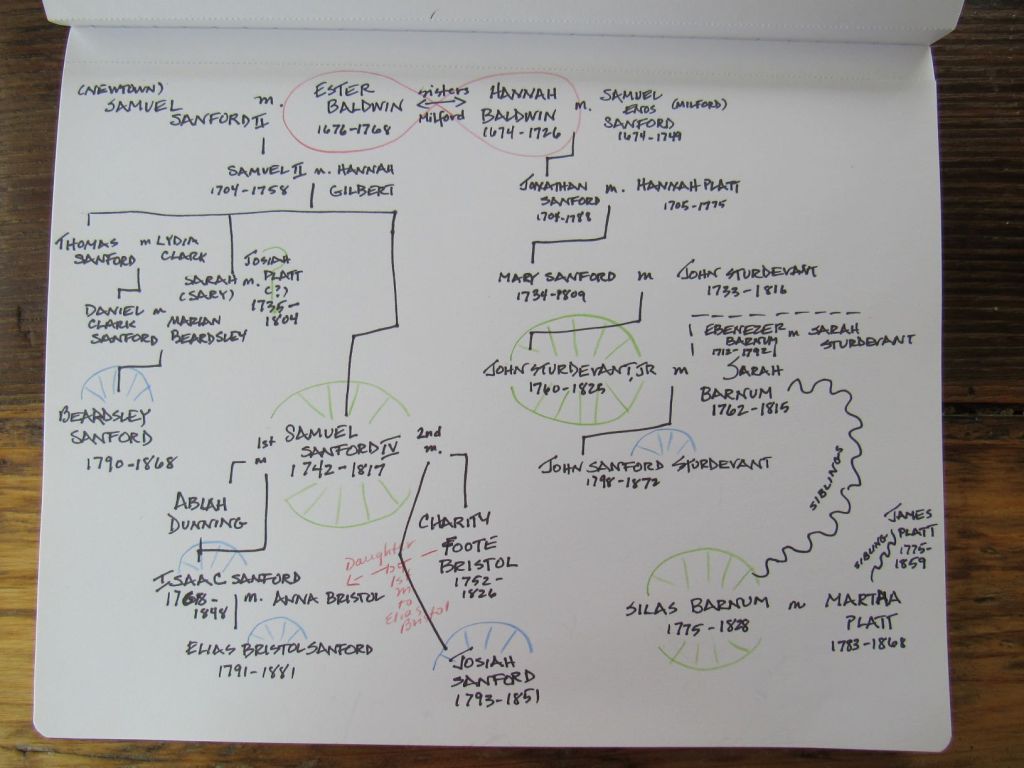 (NEWTOWN)
SAMUEL
SANFORD II
m.
ESTER
BALDWIN
1676-1768
sisters
Milford
HANNAH
BALDWIN
1674-1726
m.
SAMUEL
ENOS (MILFORD)
SANFORD
1674-1749
SAMUEL II m. HANNAH
1704-1758 GILBERT
JONATHAN m. HANNAH PLATT
SANFORD 1705-1775
1704-1788
THOMAS m LYDIA
SANFORD CLARK
SARAH m.
(SARY)
JOSIAH
PLATT
(?)
1735-
1804
DANIEL m
CLARK MARIAN
SANFORD BEARDSLEY
MARY SANFORD m JOHN STURDEVANT
1734-1809 1733-1816
EBENEZER m SARAH
BARNUM STURDEVANT
1712-1792
JOHN STURDEVANT, JR m SARAH
1760-1825 BARNUM
1762-1815
BEARDSLEY
SANFORD
1790-1868
1st
m
SAMUEL
SANFORD IV
1742-1817
2nd
m.
JOHN SANFORD STURDEVANT
1798-1872
SIBLINGS
ABIAH
DUNNING
CHARITY
FOOTE
BRISTOL
1752-
1826
Daughter
of
1st
m
to
Elias
Bristol
JAMES
PLATT
1775-
1859
SIBLING
ISAAC SANFORD
1768- m. ANNA BRISTOL
1848
SILAS BARNUM m MARTHA
1775-1828 PLATT
1783-1868
ELIAS BRISTOL SANFORD
1791-1881
JOSIAH
SANFORD
1793-1851